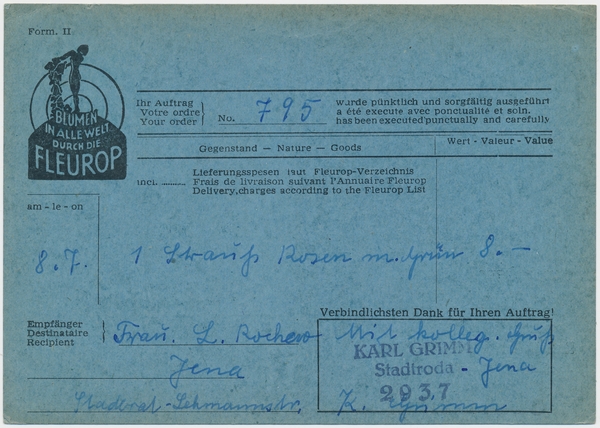 Form. II
BLUMEN
IN ALLE WELT
DURCH DIE
FLEUROP
Ihr Auftrag
Votre ordre
Your order
No. 795
wurde pünktlich und sorgfältig ausgeführt
a été execute avec ponctualité et soin.
has been executed punctually and carefully
Gegenstand — Nature — Goods
Wert - Valeur - Value
incl. ..........
Lieferungsspesen laut Fleurop-Verzeichnis
Frais de livraison suivant l'Annuaire Fleurop
Delivery, charges according to the Fleurop List
am - le - on
8.7.
1 Strauß Rosen m. Grün 8.—
Verbindlichsten Dank für Ihren Auftrag!
Empfänger
Destinataire
Recipient
Frau. L.
Jena
Mit kolleg. Gruß
KARL GRIMM
Stadtroda - Jena
2937
K. Grimm